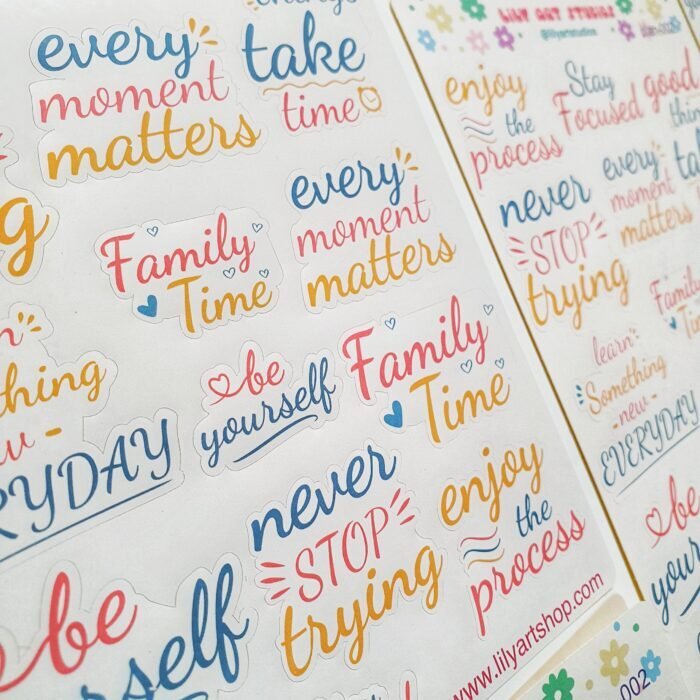 every
moment
matters
take
time
every
moment
matters
Family
Time
be
yourself
Family
Time
EVERYDAY
never
STOP
trying
enjoy
the
process
be
www.lilyartshop.com
LILY ART STUDIO
@lilyartstudios
enjoy
the
process
Stay
Focused
good
never
STOP
trying
every
moment
matters
Family
learn
Something
-new-
EVERYDAY
be
002